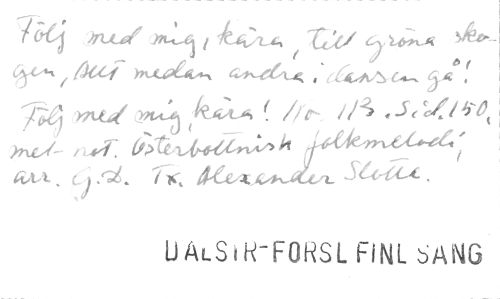 Följ med mig, kära, till gröna sko-
gen, allt medan andra i dansen gå!
Följ med mig, kära! No. 113. Sid. 150,
mel- not. Österbottnisk folkmelodi,
arr. G.D. Tx. Alexander Slotte.
DALSTR-FORSL FINL SÅNG